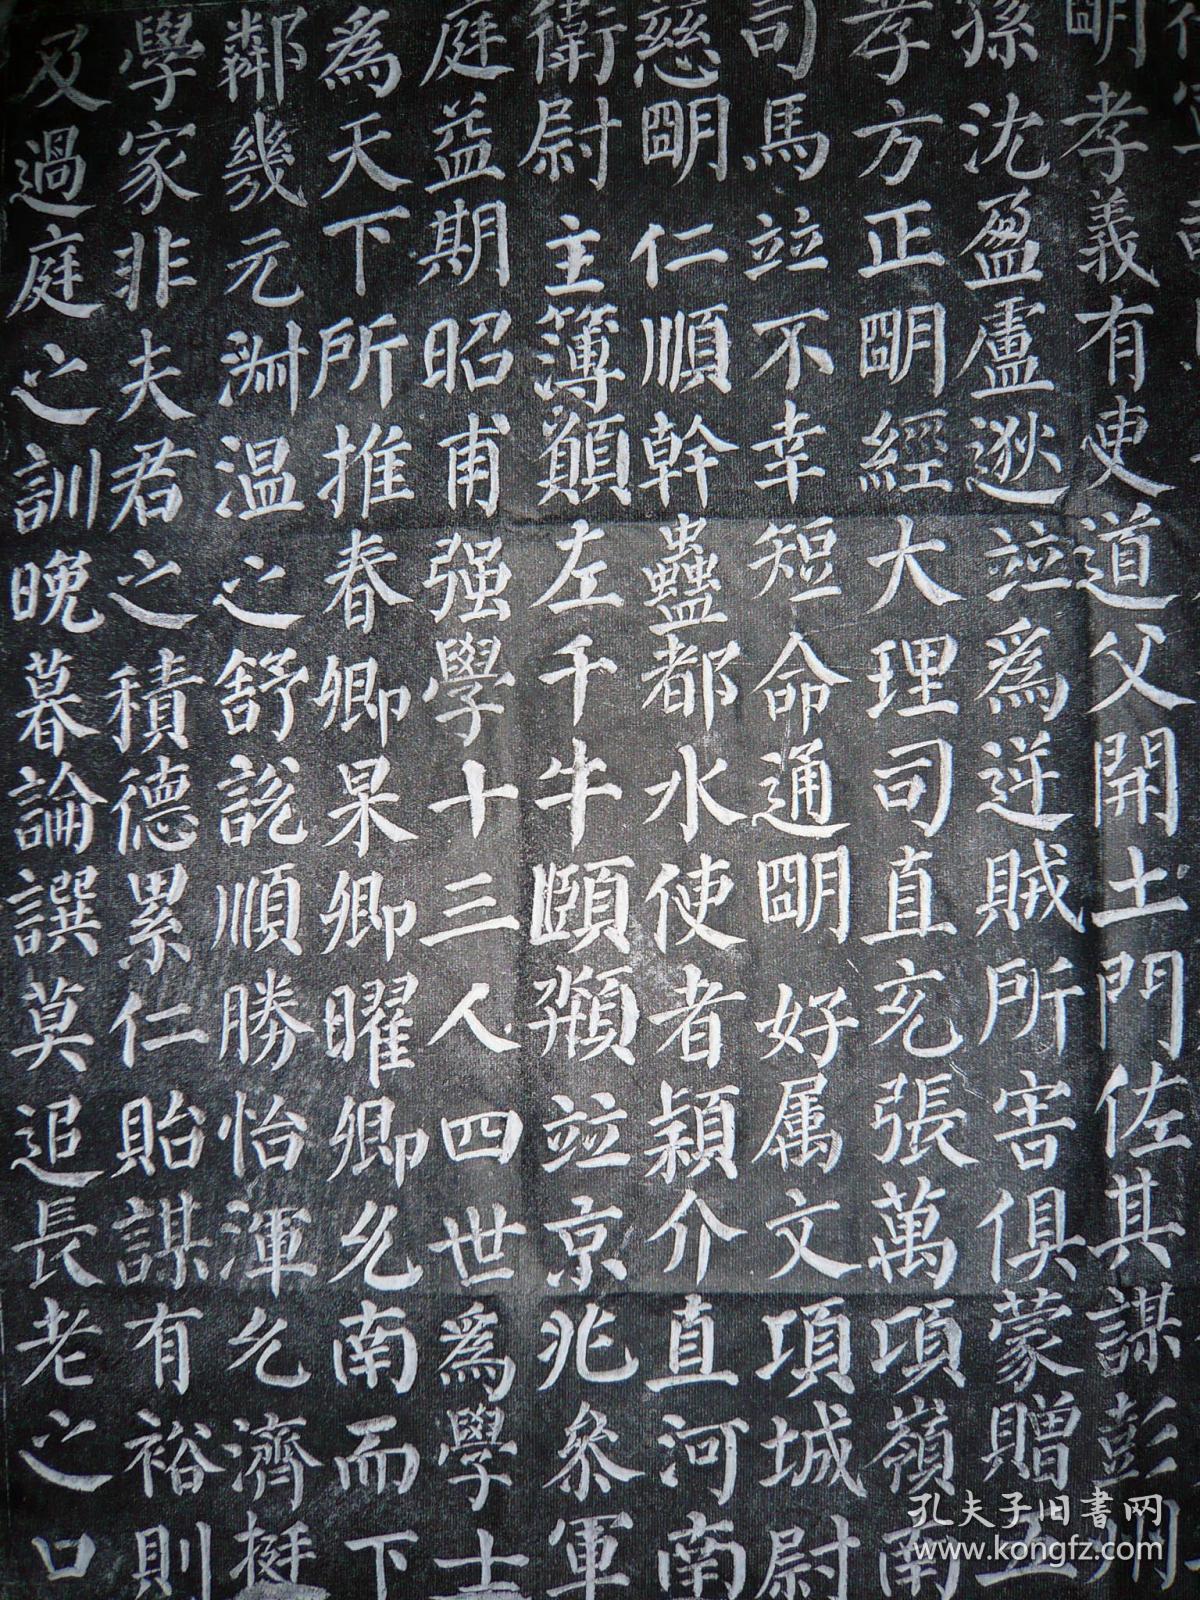 明孝義有吏道父開土門佐其謀彭州
孫沈盈盧逖並爲逆賊所害俱蒙贈五
孝方正明經大理司直充張萬項嶺南
司馬並不幸短命通明好属文項城尉
慈明仁順幹蠱都水使者穎介直河南
衛尉主簿願左千牛頤頩並京兆參軍
庭益期昭甫强學十三人四世爲學士
為天下所推春卿杲卿曜卿允南而下
鄰幾元淵温之舒說順勝怡渾允濟挺
學家非夫君之積德累仁貽謀有裕則
及過庭之訓晚暮論譔莫追長老之口
孔夫子旧書网
www.kongfz.com